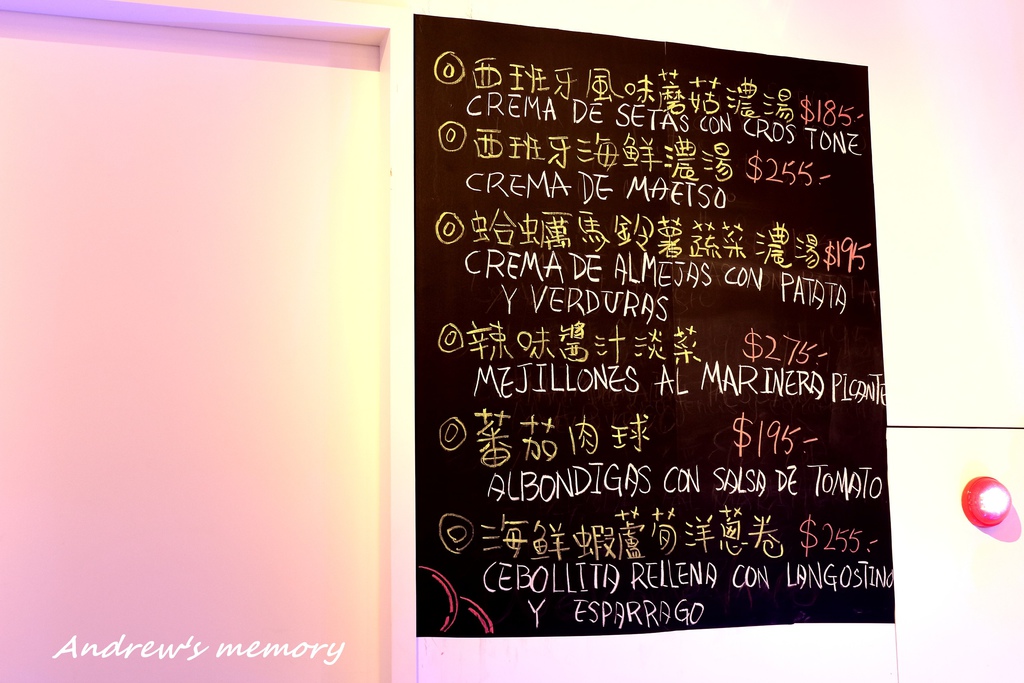 ◎西班牙風味蘑菇濃湯 $185.-
CREMA DE SETAS CON CROSTONE
◎西班牙海鮮濃湯 $255.-
CREMA DE MAETSO
◎蛤蠣馬鈴薯蔬菜濃湯 $195
CREMA DE ALMEJAS CON PATATA
Y VERDURAS
◎辣味醬汁淡菜 $275.-
MEJILLONES AL MARINERA PICANTE
◎蕃茄肉球 $195.-
ALBONDIGAS CON SALSA DE TOMATO
◎海鮮蝦蘆荀洋蔥卷 $255.-
CEBOLLITA RELLENA CON LANGOSTINO
Y ESPARRAGO
Andrew's memory